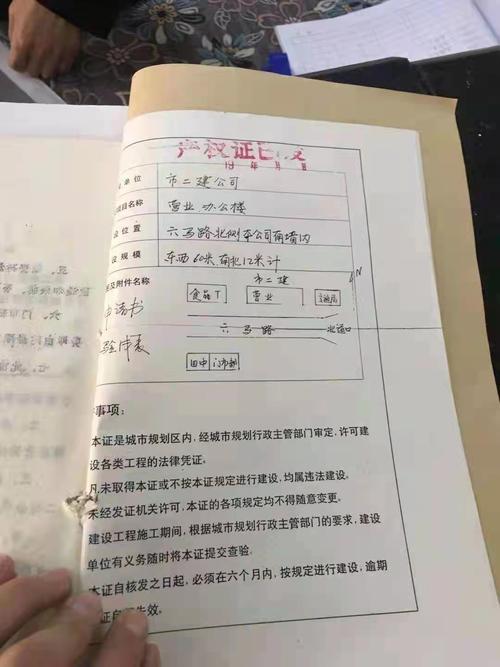 产权证已发
19 年 月 日
单位 市二建公司
项目名称 营业办公楼
设位置 六马路北侧本公司南墙内
设规模 东西60米南北12米计
及附件名称
申请书
N
市二建
食品厂 营业
六马路
北道口
田中 门市部
事项:
本证是城市规划区内,经城市规划行政主管部门审定,许可建
设各类工程的法律凭证。
凡未取得本证或不按本证规定进行建设,均属违法建设。
未经发证机关许可,本证的各项规定均不得随意变更。
建设工程施工期间,根据城市规划行政主管部门的要求,建设
单位有义务随时将本证提交查验.
本证自核发之日起,必须在六个月内,按规定进行建设,逾期
证自行失效。